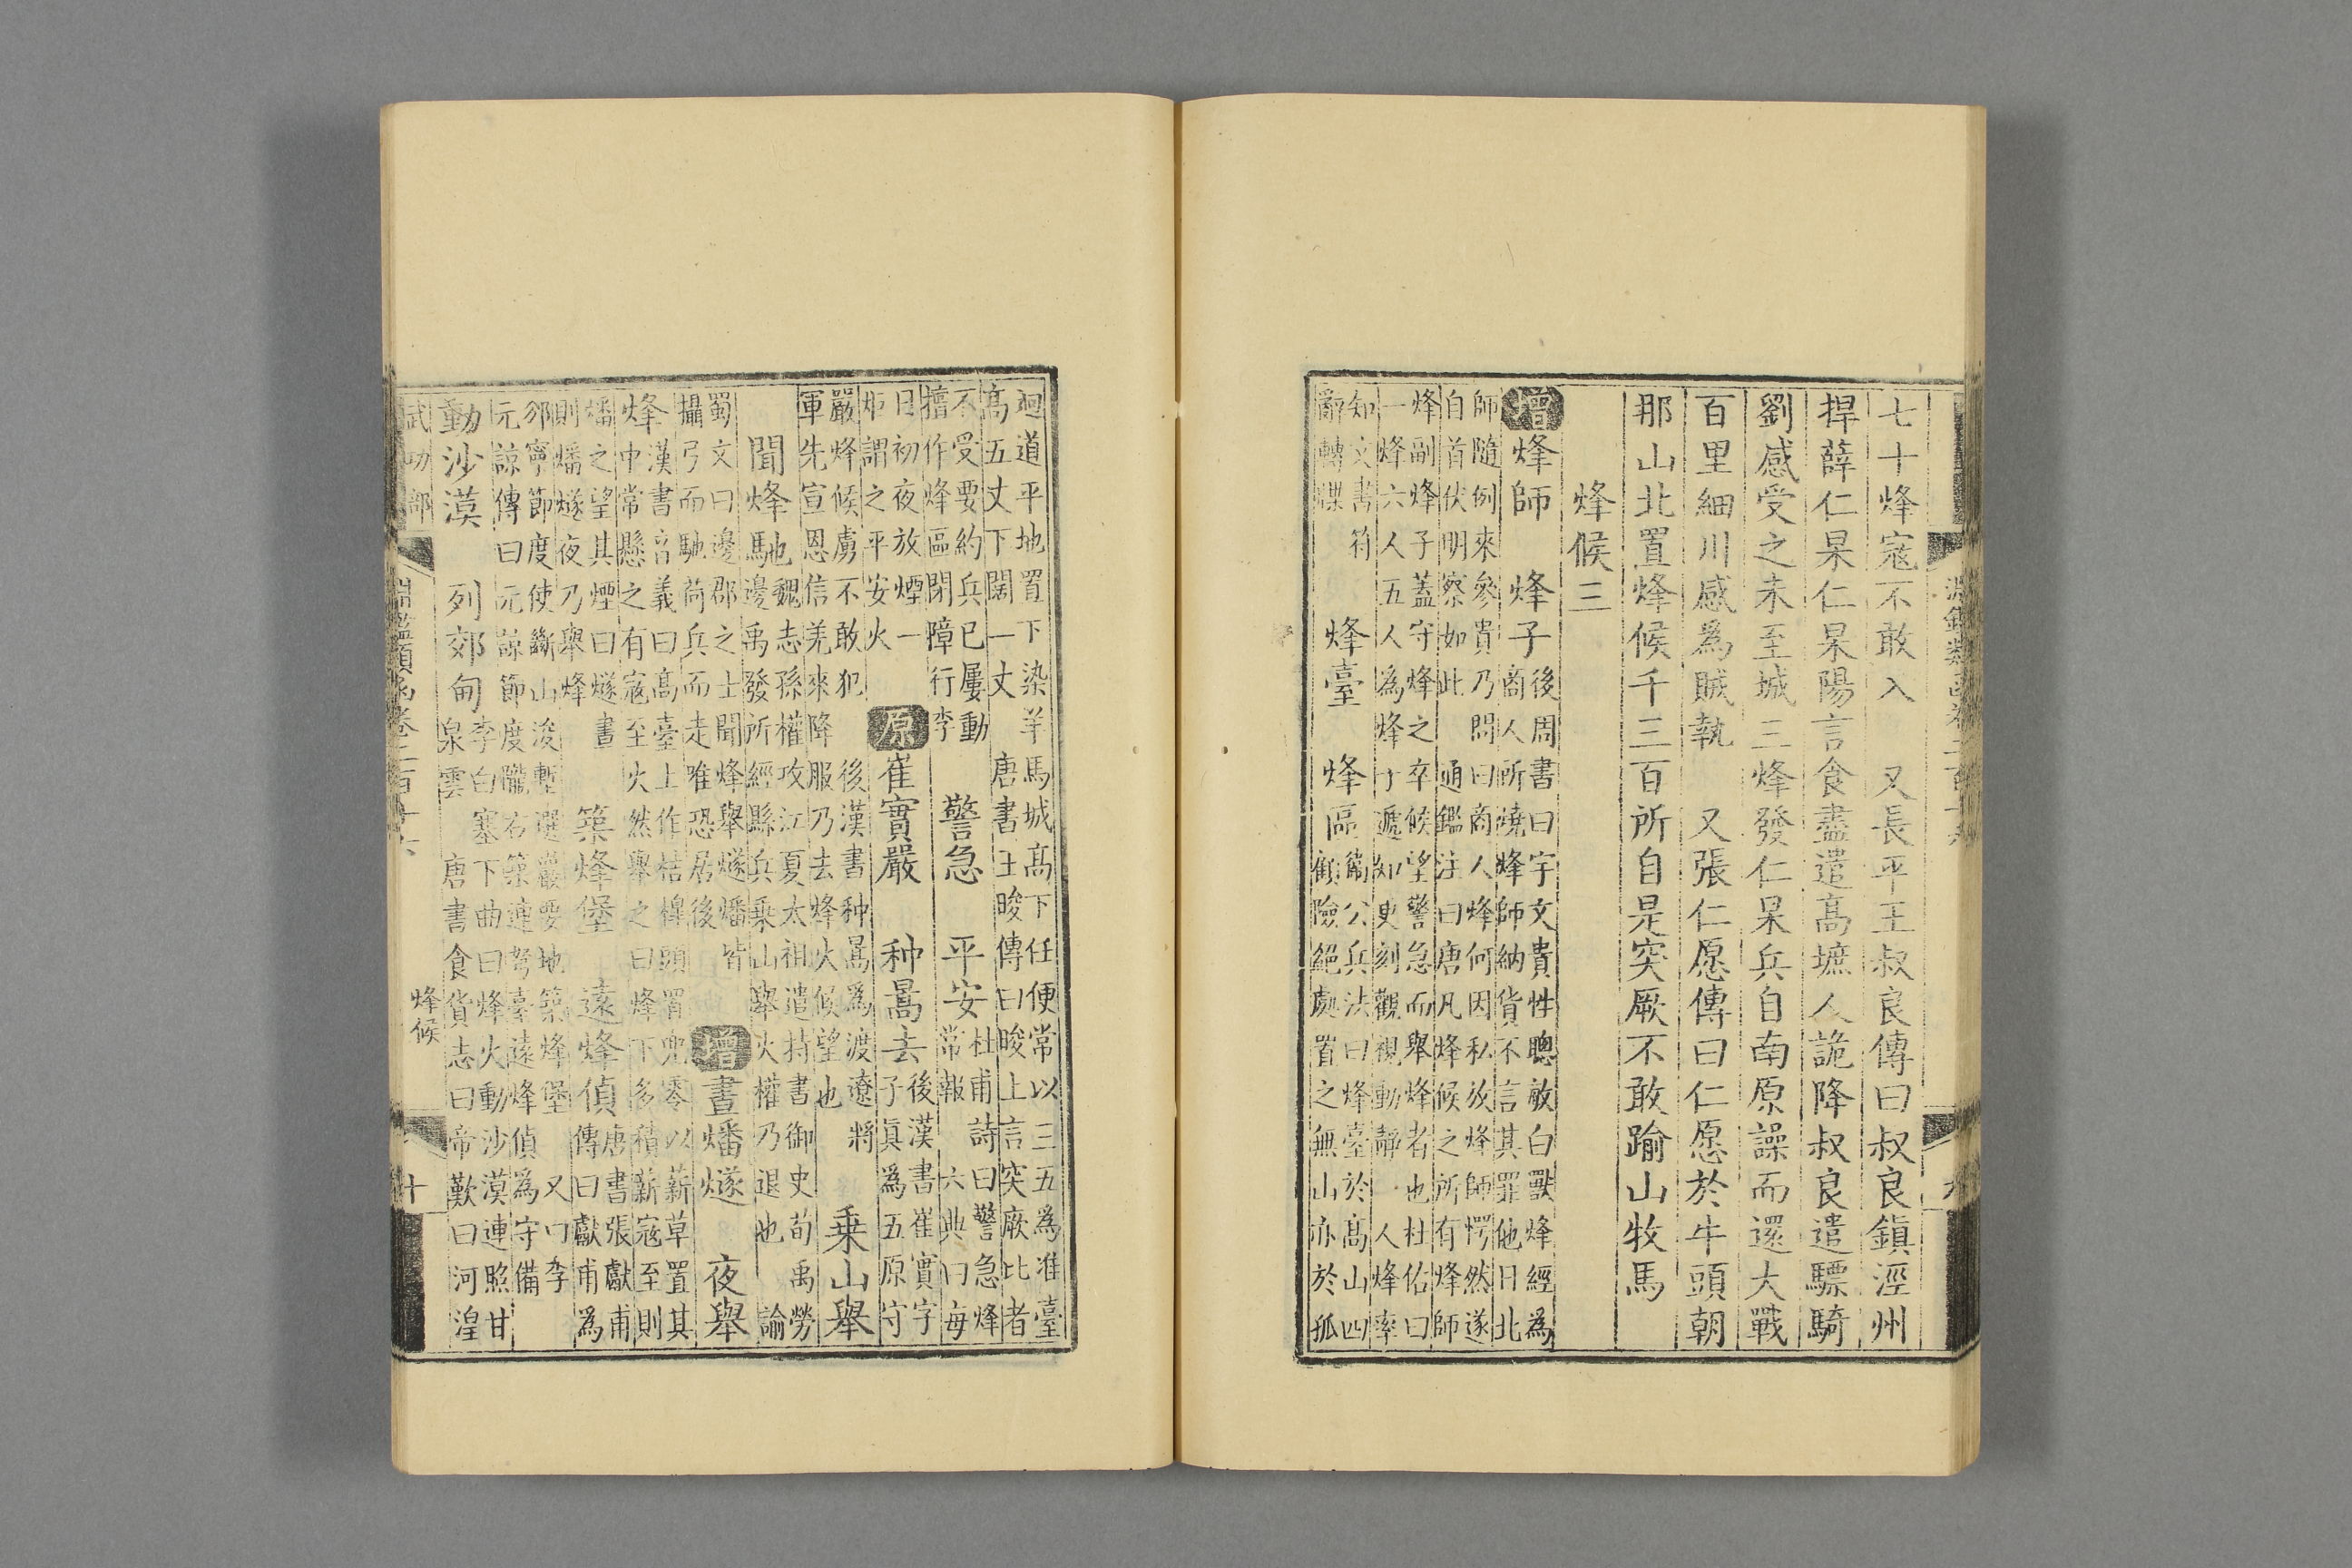 七十烽寇不敢入 又長平王叔良傳曰叔良鎮涇州
捍薛仁杲仁杲陽言食盡遣高墌人詭降叔良遣驃騎
劉感受之未至城三烽發仁杲兵自南原譟而還大戰
百里細川感爲賊執 又張仁愿傳曰仁愿於牛頭朝
那山北置烽候千三百所自是突厥不敢踰山牧馬
烽候三
增烽師 烽子
後周書曰宇文貴性聰敏白獸烽經為
商人所燒烽師納貨不言其罪他日北
師隨例來參貴乃問曰商人烽何因私放烽師愕然遂
自首伏明察如此 通鑑注曰唐凡烽候之所有烽師
烽副烽子蓋守烽之卒候望警急而舉烽者也杜佑曰
一烽六人五人為烽子遞如更刻觀視動靜一人烽率
知文書符
辭轉牒
烽臺 烽區
衞公兵法曰烽臺於高山四
顧險絕處置之無山亦於孤
迥道平地置下染羊馬城高下任便常以三五爲准臺
高五丈下闊一丈 唐書王晙傳曰晙上言突厥比者
不受要約兵已屢動
擅作烽區閉障行李
警急 平安
杜甫詩曰警急烽
常報 六典曰每
日初夜放煙一
炬謂之平安火
原崔實嚴 种暠去
後漢書崔實字
子眞爲五原守
嚴烽候虜不敢犯 後漢書种暠爲渡遼將
軍先宣恩信羌來降服乃去烽火候望也
乗山舉
聞烽馳
魏志孫權攻江夏太祖遣持書御史荀禹勞
邊禹發所經縣兵乗山舉火權乃退也 論
蜀文曰邊郡之士聞烽舉燧燔皆
攝弓而馳荷兵而走唯恐居後
增晝燔燧 夜舉
烽
漢書音義曰高臺上作桔橰頭置兜零以薪草置其
中常懸之有寇至火然舉之曰烽下多積薪寇至則
燔之望其煙曰燧書
則燔燧夜乃舉烽
築烽堡 遠烽偵
唐書張獻甫
傳曰獻甫爲
邠寧節度使斷山浚塹選嚴要地築烽堡 又曰李
元諒傳曰元諒節度隴右築連弩臺遠烽偵爲守備
動沙漠 列郊甸
李白塞下曲曰烽火動沙漠連照甘
泉雲 唐書食貨志曰帝歎曰河湟
武功部
淵鑑類函卷二百二十六
烽候
十